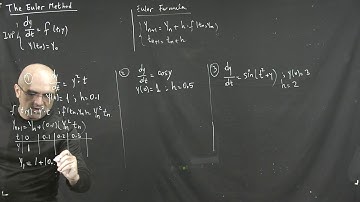 The Euler Method
IVP { dy/dt = f(t,y)
y(t₀) = y₀
Euler Formula
yₙ₊₁ = yₙ + h·f(tₙ,yₙ)
tₙ₊₁ = tₙ + h
dy/dt = y² t
y(0) = 1 ; h = 0.1
f(t,y) = y² t ; f(tₙ,yₙ) = yₙ² tₙ
yₙ₊₁ = yₙ + (0.1)(yₙ² tₙ)
t | 0 | 0.1 | 0.2 | 0.3
y | 1
y₁ = 1 + (0.
② dy/dt = cos y
y(0) = 1 ; h = 0.5
③ dy/dt = sin(t² + y) ; y(0) = 3
h = 2